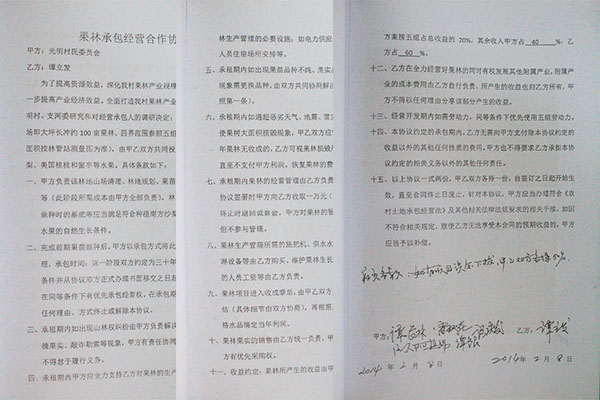 果林承包经营合作协
甲方：光明村民委员会
乙方：谭立发
为了提高资源效益，深化我村果林产业规模
一步提高产业经济效益，全面打造我村果林产业
明村，支两委研究和对经营承包人的调研决定：
场即大坪长冲约 100 亩果林，四界范围参照五组
面积按林管站测量图为准），由甲乙双方共同投
梨、美国核桃和蜜辛等水果，具体条款如下：
一、甲方负责该林地山场清理、林地规划、果苗
等（此阶段所需成本由甲方全部负责），林
栽种时的基肥等应当满足符合种植南方沙梨
水果的自然生长条件。
二、完成前期果苗栽种后，甲方以承包方式将此
理，承包时间：该一阶段双方约定为三十年
条件并从协议双方正式办理书面移交之日起
在同等条件下有优先承包经营权，在承包期
任何理由、方式终止或解除本协议。
三、承租期内如出现山林权纠纷由甲方负责解决
摘果实、敲诈勒索等现象，甲方有责任协同
不得怠于履行义务。
四、承租期内甲方应全力支持乙方对果林的生产
林生产管理的必要设施；如电力供应
人员住宿场所安排等。
五、承租期内如出现果苗品种不纯、果实品
现象需更换品种，由双方共同协商解决
照第一条）。
六、承租期内如遇超恶劣天气、地震、雪
使果树大面积损毁现象，甲乙双方应
年果林无收成的，乙方可视果林损毁
直至不支付甲方利润，恢复果林的费
七、承租期内果林的经营管理由乙方负责
协议签署时甲方向乙方收取一万元（
终止时退回该款金，甲方对果林的管
但不参与管理。
八、果林生产管理所需的施肥机、供水水
淋设备等由乙方购买，维护果林生长
的人员工资等由乙方负责。
九、果林项目进入收成季后，由甲乙双方
估（具体细节由双方协商），再根据
格水品确定当年利润。
十、果林果实的销售由乙方统一负责，甲
方有优先采购权。
十一、收益约定：果林所产生的收益由甲
方案按五组占总收益的 20%，其余收入甲方占 40 %；乙
占 60 %。
十二、乙方在全力经营好果林的同时有权发展其他附属产业，附属产
业的成本费用由乙方自行负责，所产生的收益也归乙方所有，甲
方不得以任何理由分享该部分产生的收益。
十三、经营开发期内如需劳动力，同等条件下优先使用五组劳动力。
十四、本协议约定的承包期内，乙方无需向甲方支付除本协议约定的
收益以外的其他任何性质的费用。甲方也不得要求乙方承担本协
议约定的相关义务以外的其他任何责任。
十五、以上协议一式两份，甲乙双方各持一份，自签订之日起开始生
效，直至合同终止日废止。针对本协议，甲方应当办理符合《农
村土地承包经营法》及其他相关法律法规要求的相关手续，如因
不符合相关规定，致使乙方无法享受本合同的预期收益的，甲方
应当予以补偿。
甲方：
乙方：
2014 年 2 月 8 日
2014 年 2 月 8 日